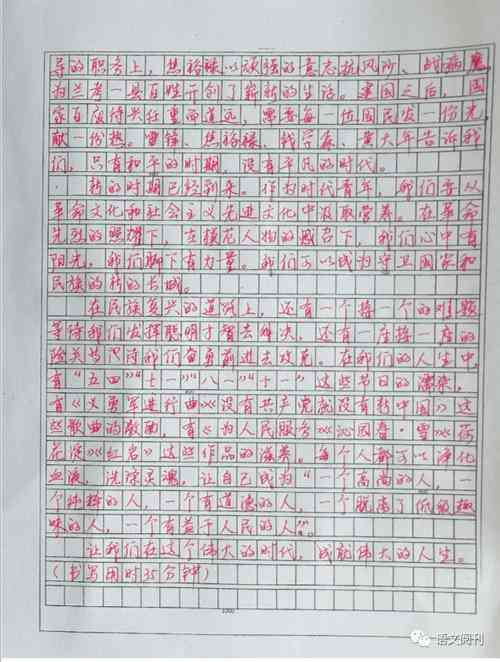 导的职务上，焦裕禄以顽强的意志抗风沙、战病魔，
为兰考一县百姓开创了崭新的生活。建国之后，国
家百废待兴任重而道远，需要每一位国民发一份光，
献一份热。雷锋、焦裕禄、钱学森、黄大年告诉我
们，只有和平的时期，没有平凡的时代。
新的时期已经到来。作为时代青年，我们要从
革命文化和社会主义先进文化中汲取营养。在革命
先烈的照耀下，在模范人物的感召下，我们心中有
阳光，我们脚下有力量。我们可以成为守卫国家和
民族的新的长城。
在民族复兴的道路上，还有一个接一个的难题
等待我们发挥聪明才智去解决，还有一座接一座的
险关等待我们奋勇前进去攻克。在我们的人生中，
有“五四”“七一”“八一”“十一”这些节日的熏染，
有《义勇军进行曲》《没有共产党就没有新中国》这
些歌曲的鼓励，有《为人民服务》《沁园春·雪》《荷
花淀》《红岩》这些作品的滋养。每个人都可以净化
血液，洗涤灵魂，让自己成为“一个高尚的人，一
个纯粹的人，一个有道德的人，一个脱离了低级趣
味的人，一个有益于人民的人”。
让我们在这个伟大的时代，成就伟大的人生。
（书写用时35分钟）
语文阅刊